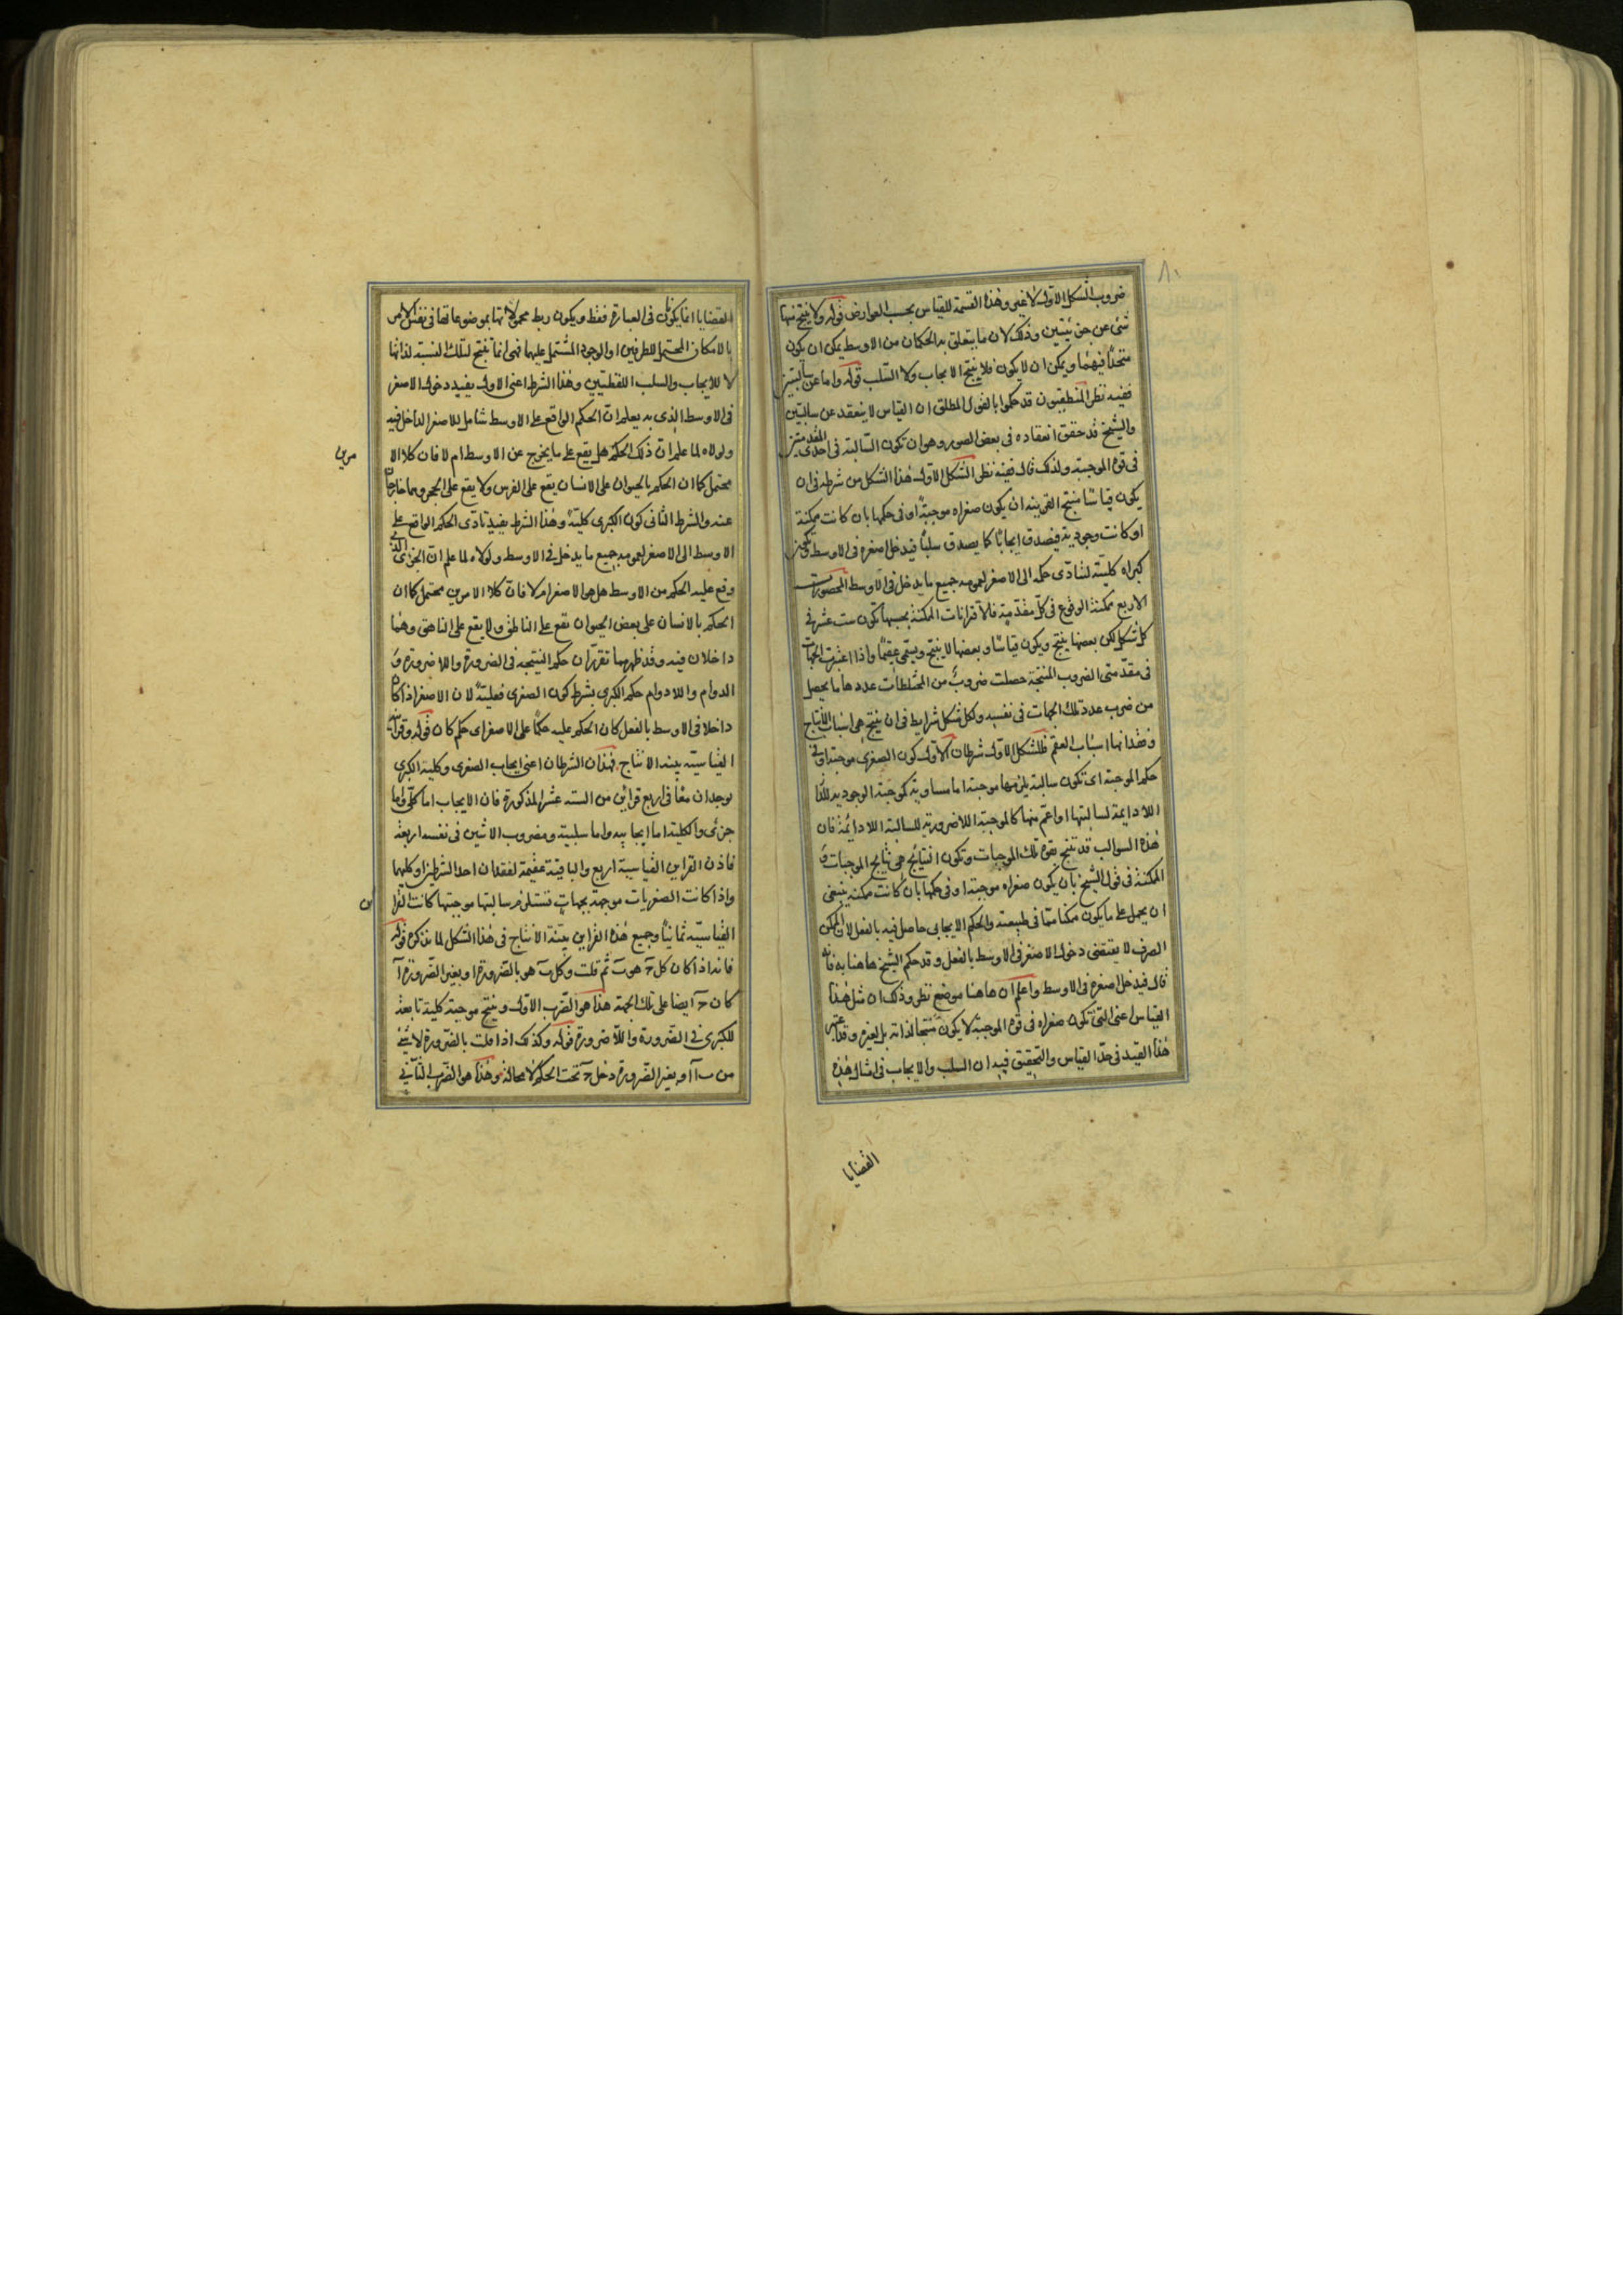 ٨٠
ضروب الشكل الاول لا غير وهذه القسمة للقياس بحسب العوارض قوله ولا ينتج منها
شئ عن جزئيتين وذلك لان ما يتعلق به الحكمان من الاوسط يمكن ان يكون
متحدا فيهما ويمكن ان لا يكون فلا ينتج الايجاب ولا السلب قوله واما عن سالبتين
ففيه نظر المنطقيون قد حكموا بالقول المطلق ان القياس لا ينعقد عن سالبتين
والشيخ قد حقق انعقاده فى بعض الصور وهو ان تكون السالبة فى احدى المقدمتين
فى قوة الموجبة ولذلك قال ففيه نظر الشكل الاول هذا الشكل من شرطه فى ان
يكون قياسا منتج القرينة ان يكون صغراه موجبة او فى حكمها بان كانت ممكنة
او كانت وجودية فيصدق ايجابا كما يصدق سلبا فيدخل اصغره فى الاوسط ويكون
كبراه كلية لتتأدى حكمه الى الاصغر لعمومه جميع ما يدخل فى الاوسط المحصورات
الاربع ممكنة الوقوع فى كل مقدمة فالاقترانات الممكنة بحسبها تكون ست عشر فى
كل شكل لكن بعضها ينتج ويكون قياسا وبعضها لا ينتج ويسمى عقيما واذا اعتبرت الجهات
فى مقدمتى الضروب المنتجة حصلت ضروب من المختلطات عددها ما يحصل
من ضرب عدد تلك الجهات فى نفسه ولكل شكل شرايط فى ان ينتج هى اسباب الانتاج
وفقدانها اسباب العقم فللشكل الاول شرطان الاول كون الصغرى موجبة او فى
حكم الموجبة اى تكون سالبة يلزمها موجبة اما مساوية كموجبة الوجودية
اللادايمة لسالبتها او اعم منها كالموجبة اللاضرورية للسالبة اللادائمة فان
هذه السوالب قد تنتج بقوة تلك الموجبات وتكون النتايج هى نتايج الموجبات و
الممكنة فى قول الشيخ بان يكون صغراه موجبة او فى حكمها بان كانت ممكنة ينبغى
ان يحمل على ما يكون ممكنا متا فى طبيعته والحكم الايجابى حاصل فيه بالفعل لان الممكن
الصرف لا يقتضى دخول الاصغر فى الاوسط بالفعل وقد حكم الشيخ هاهنا به فانه
قال فيدخل اصغره فى الاوسط واعلم ان هاهنا موضع نظر وذلك ان مثل هذا
القياس اعنى التى تكون صغراه فى قوة الموجبة لا يكون منتجا لذاته بل لغيره وقد اعتبر
هذا القيد فى حد القياس والتحقيق فيه ان السلب والايجاب فى امثال هذه
القضايا
القضايا انما يكون فى العبارة فقط ويكون ربط محمولاتها بموضوعاتها فى نفس الامر
بالامكان المحتمل للطرفين او الوجود المشتمل عليهما فهى انما تنتج لتلك النسبة لذاتها
لا للايجاب والسلب اللفظيين وهذا الشرط اعنى الاول يفيد دخول الاصغر
فى الاوسط الذى به يعلم ان الحكم الواقع على الاوسط شامل للاصغر الداخل فيه
ولولاه لما علم ان ذلك الحكم هل يقع على ما يخرج عن الاوسط ام لا فان كلا الا
مرين
محتمل كما ان الحكم بالحيوان على الانسان يقع على الفرس ولا يقع على الحجر وهما خارجان
عنه والشرط الثانى كون الكبرى كلية وهذا الشرط يفيد تأدى الحكم الواقع على
الاوسط الى الاصغر لعمومه جميع ما يدخل فى الاوسط ولولاه لما علم ان الجزء الذى
وقع عليه الحكم من الاوسط هل هو الاصغر ام لا فان كلا الامرين محتمل كما ان
الحكم بالانسان على بعض الحيوان يقع على الناطق ولا يقع على الناهق وهما
داخلان فيه وقد ظهر مما تقرر ان حكم النتيجة فى الضرورة واللاضرورة و
الدوام واللادوام حكم الكبرى بشرط كون الصغرى فعلية لان الاصغر اذا كان
داخلا فى الاوسط بالفعل كان الحكم عليه حكما على الاصغر اى حكم كان قوله وقرائنه
القياسية بينة الانتاج فهذان الشرطان اعنى ايجاب الصغرى وكلية الكبرى
يوجدان معا فى اربع قرائن من الستة عشر المذكورة فان الايجاب اما كلى واما
جزئى والكلية اما ايجابية واما سلبية ومضروب الاثنين فى نفسه اربعة
فاذن القراين القياسية اربع والباقية عقيمة لفقدان احد الشرطين او كليهما
واذا كانت الصغريات موجهة بجهات تستلزم سالبتها موجبتها كانت القرا
ين
القياسية ثمانيا وجميع هذه القراين بينة الانتاج فى هذا الشكل لما نذكره قوله
فانه اذا كان كل ج هو ب ثم قلت وكل ب هو بالضرورة او بغير الضرورة آ
كان ج آ ايضا على تلك الجهة هذا هو الضرب الاول وينتج موجبة كلية تابعة
للكبرى فى الضرورة واللاضرورة قوله وكذلك اذا قلت بالضرورة لا شئ
من ب آ او بغير الضرورة دخل ج تحت الحكم لا محالة وهذا هو الضرب الثانى